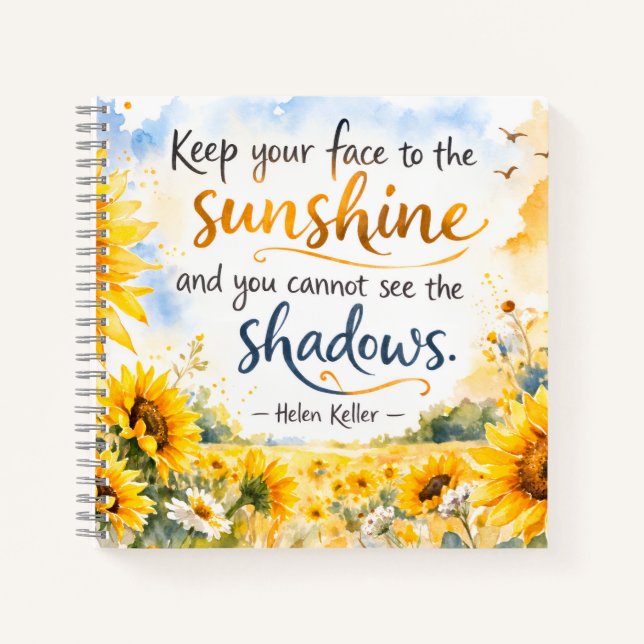 Keep your face to the
sunshine
and you cannot see the
shadows.
— Helen Keller —